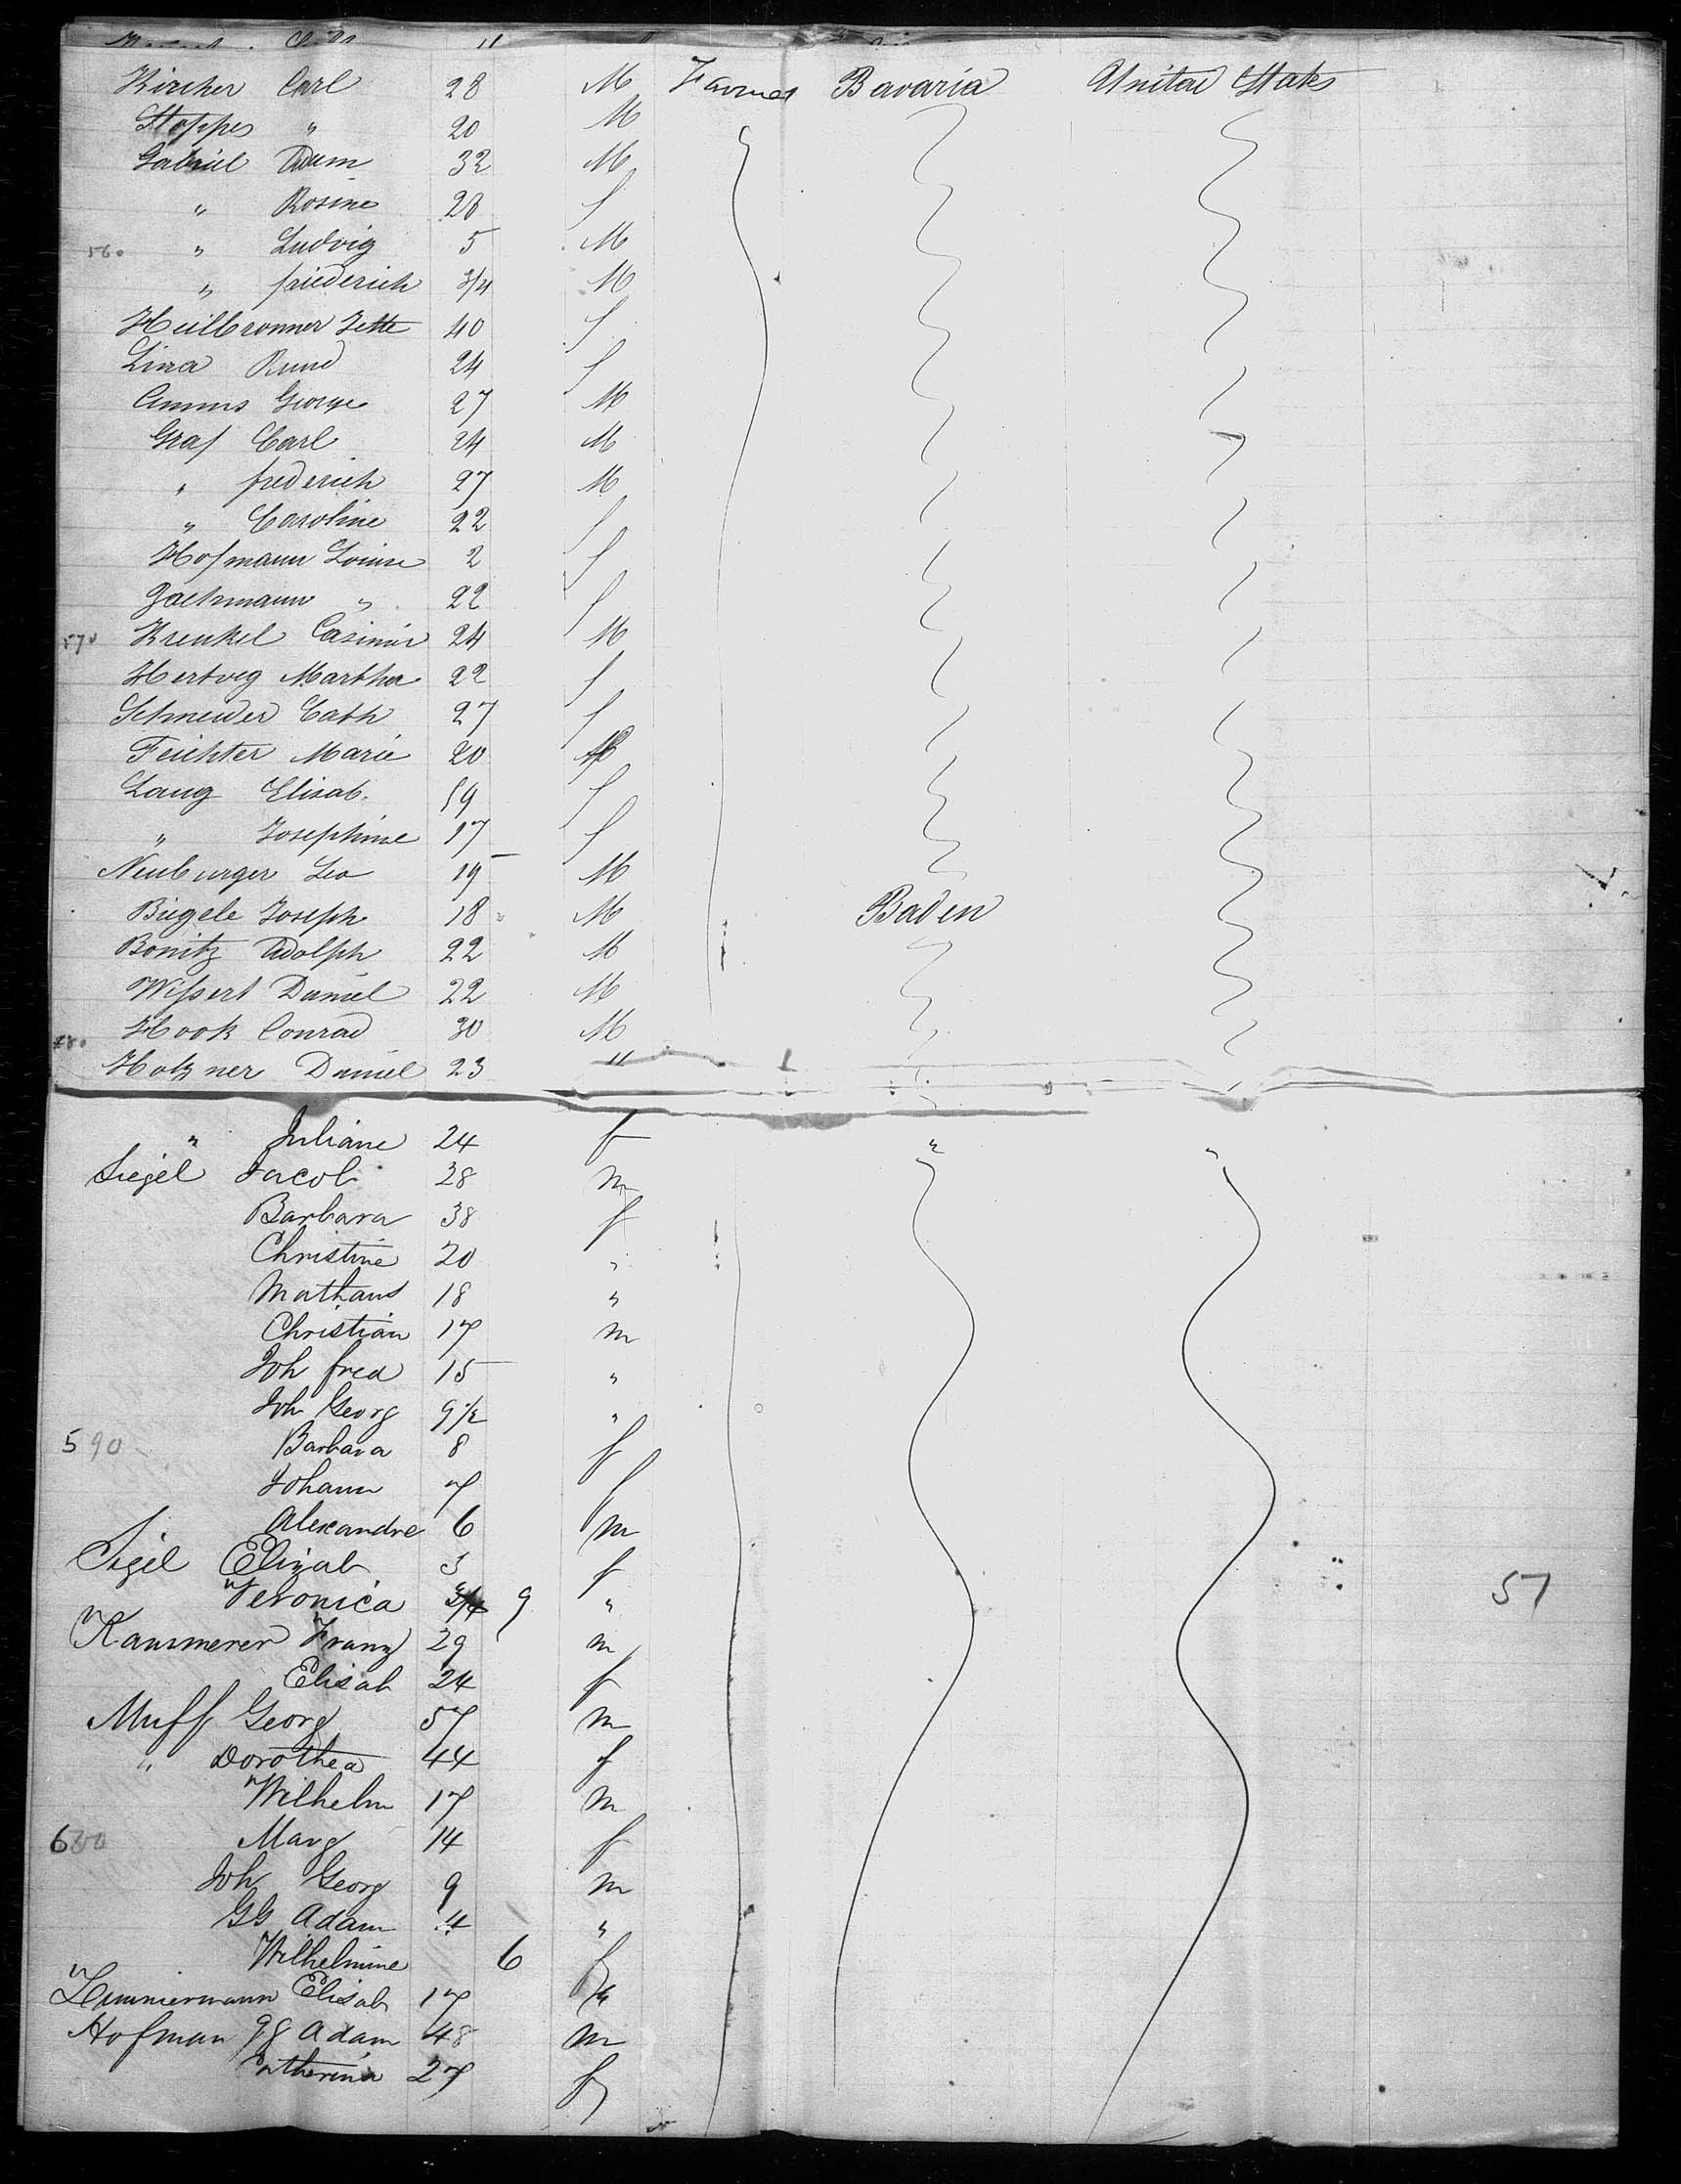 Kircher Carl 28 M Farmer Bavaria United States
Stoppes " 20 M
Gabriel Adam 32 M
" Rosine 28 f
560 " Ludvig 5 M
" friederich 3/4 M
Heilbronner Jette 40 f
Lina Rund 24 f
George 27 M
Graf Carl 24 M
" frederich 27 M
" Caroline 22 f
Hofmann Louise 2 f
" 22 f
570 Krenkel Casimir 24 M
Hertveg Martha 22 f
Schneider Cath 27 f
Feichter Marie 20
Lang Elisab. 59 f
" Josephine 17 f
Neuburger Leo 19 M
Biegele Joseph 18 M Baden
Bonitz Adolph 22 M
Wissert Daniel 22 M
580 Hook Conrad 30 M
Hotzner Daniel 23 "
" Juliane 24 f " "
Siegel Jacob 38 m
Barbara 38 f
Christine 20 "
Mathaus 18 "
Christian 17 m
Joh fred 15 "
Joh Georg 9 1/2 "
590 Barbara 8 f
Johann 7 f
Alexandre 6 m
Sigel Elisab 3 f
" Veronica 3/4 9 " 57
Kammerer Franz 29 m
Elisab 24 f
Muff Georg 57 m
" Dorothea 44 f
" Wilhelm 17 m
600 Marg 14 f
Joh Georg 9 m
GG Adam 4 "
Wilhelmine 6 f
Zimmermann Elisab 17
Hofman gg Adam 48 m
Catherina 27 f